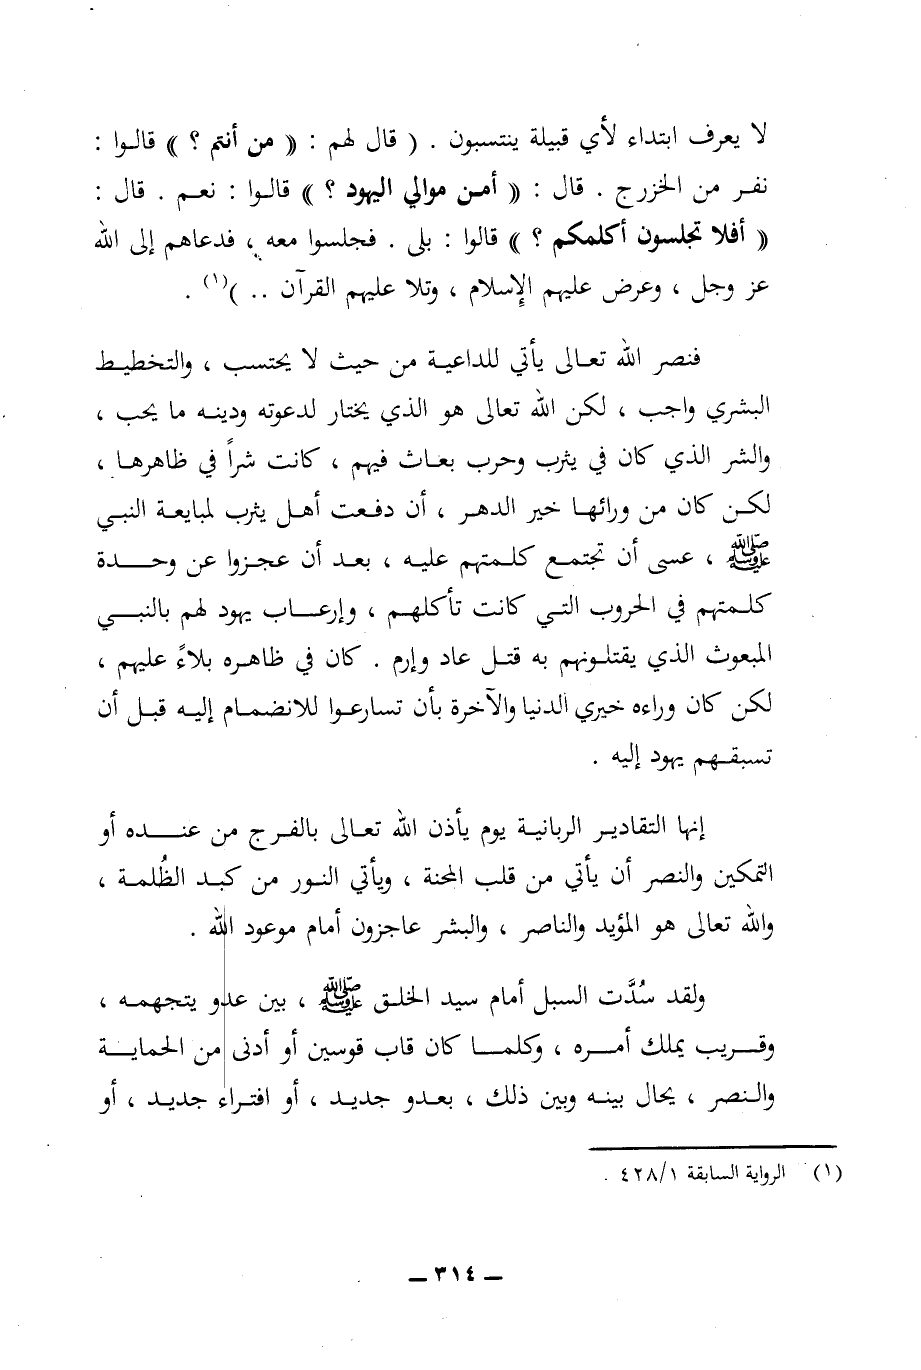 لا يعرف ابتداء لأي قبيلة ينتسبون . ( قال لهم : « من أنتم ؟ » قالوا :
نفر من الخزرج . قال : « أمن موالي اليهود ؟ » قالوا : نعم . قال :
« أفلا تجلسون أكلمكم ؟ » قالوا : بلى . فجلسوا معه ، فدعاهم إلى الله
عز وجل ، وعرض عليهم الإسلام ، وتلا عليهم القرآن .. )(١) .
فنصر الله تعالى يأتي للداعية من حيث لا يحتسب ، والتخطيط
البشري واجب ، لكن الله تعالى هو الذي يختار لدعوته ودينه ما يحب ،
والشر الذي كان في يثرب وحرب بعاث فيهم ، كانت شراً في ظاهرها ،
لكن كان من ورائها خير الدهر ، أن دفعت أهل يثرب لمبايعة النبي
ﷺ ، عسى أن تجتمع كلمتهم عليه ، بعد أن عجزوا عن وحدة
كلمتهم في الحروب التي كانت تأكلهم ، وإرعاب يهود لهم بالنبي
المبعوث الذي يقتلونهم به قتل عاد وإرم . كان في ظاهره بلاءً عليهم ،
لكن كان وراءه خيري الدنيا والآخرة بأن تسارعوا للانضمام إليه قبل أن
تسبقهم يهود إليه .
إنها التقادير الربانية يوم يأذن الله تعالى بالفرج من عنده أو
التمكين والنصر أن يأتي من قلب المحنة ، ويأتي النور من كبد الظُلمة ،
والله تعالى هو المؤيد والناصر ، والبشر عاجزون أمام موعود الله .
ولقد سُدَّت السبل أمام سيد الخلق ﷺ ، بين عدو يتجهمه ،
وقريب يملك أمره ، وكلما كان قاب قوسين أو أدنى من الحماية
والنصر ، يحال بينه وبين ذلك ، بعدو جديد ، أو افتراء جديد ، أو
(١) الرواية السابقة ٤٢٨/١ .
– ٣١٤ –